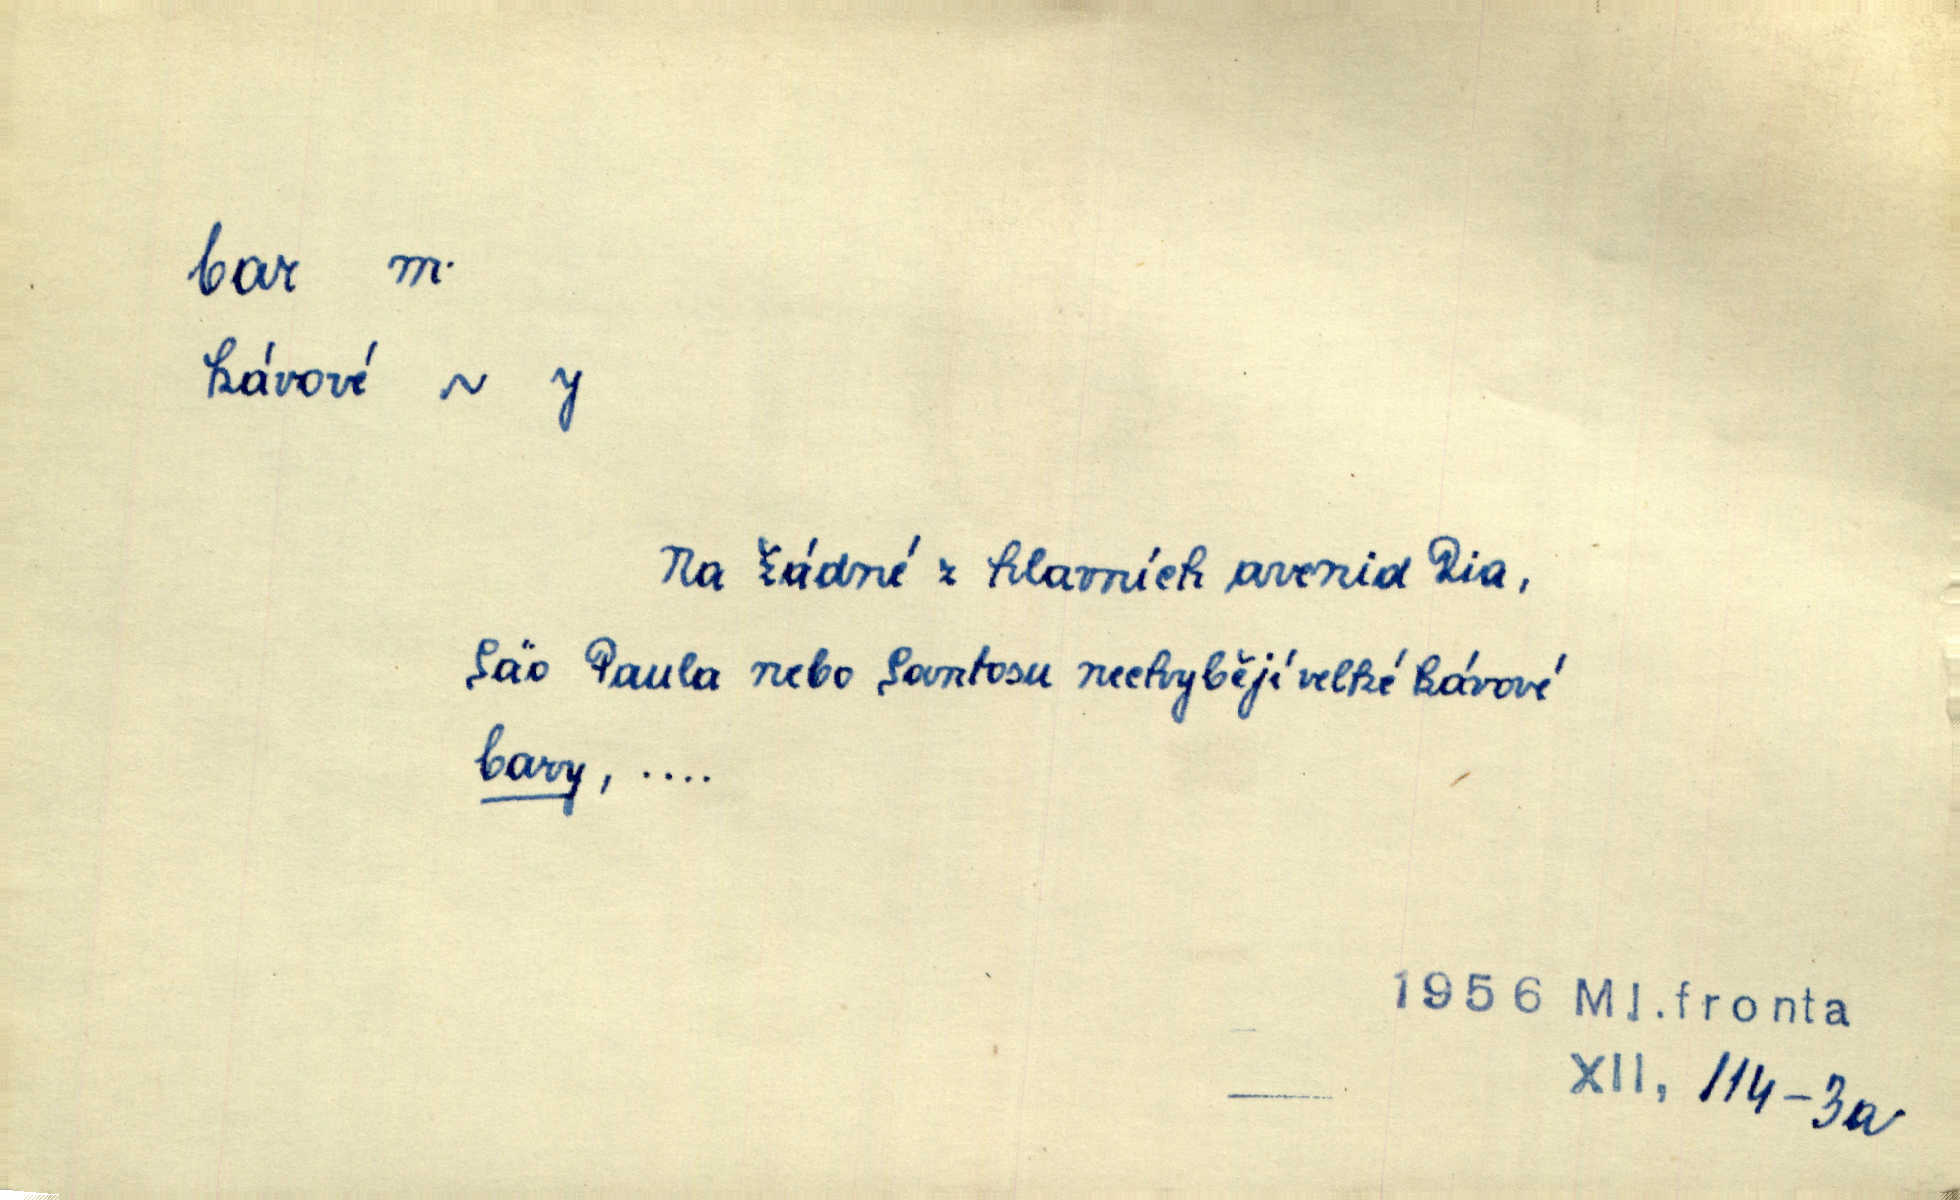 bar m.
kávové ~ y
Na žádné z hlavních avenid Ria,
Säo Paula nebo Santosu nechybějí velké kávové
bary, ....
1956 Ml.fronta
XII, 114-3a